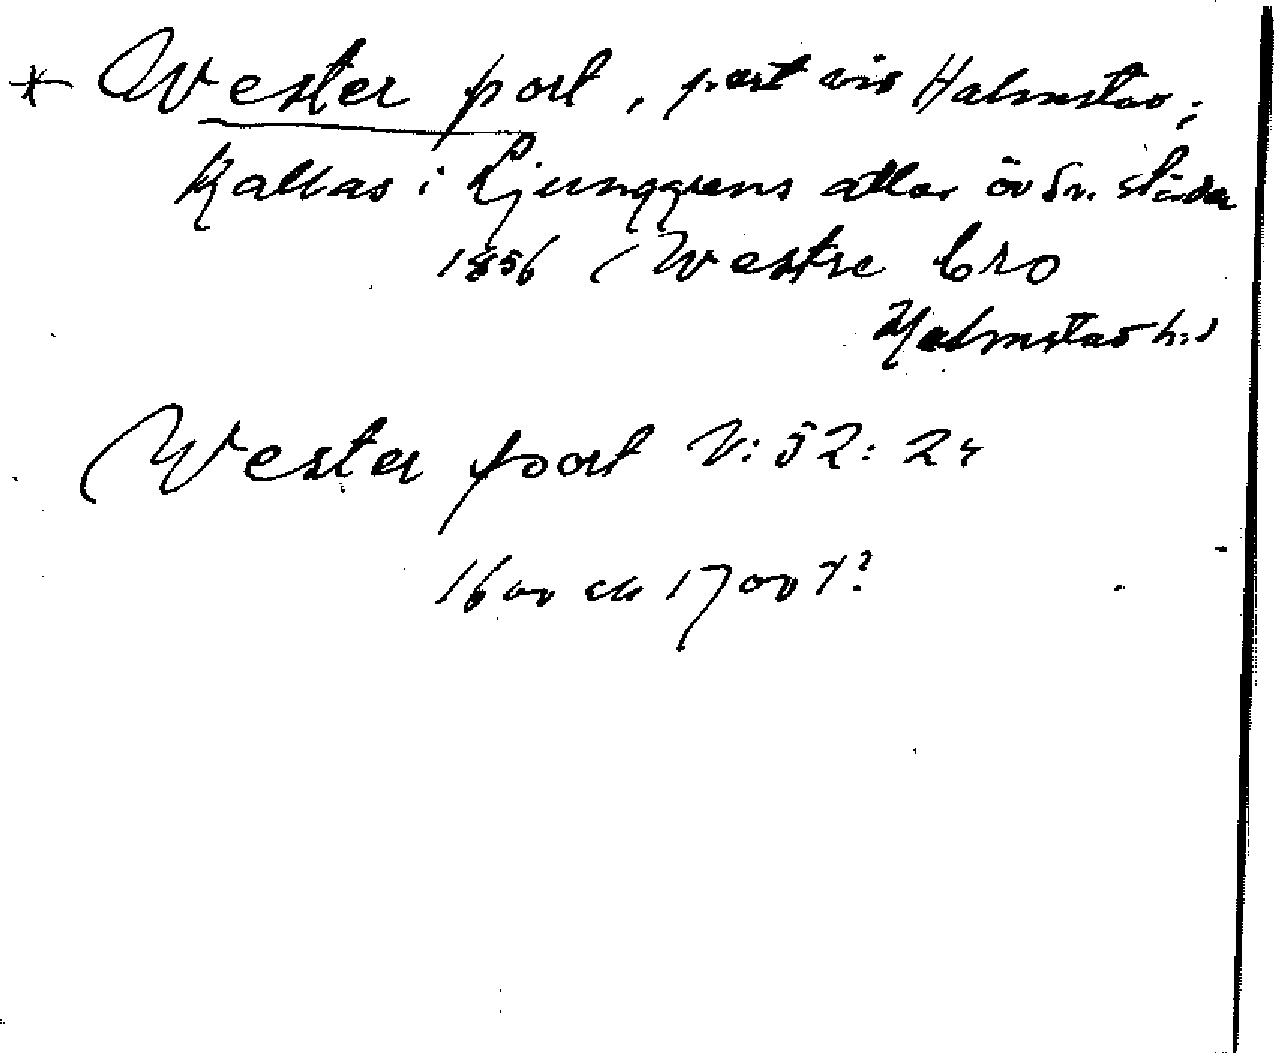 * Wester port, port vid Halmstad;
kallas i Ljunggrens atlas öv. Sv. städer
1856 Westre bro
Halmstad h:d
Wester poort V:52:24
1600 ell 1700 t?